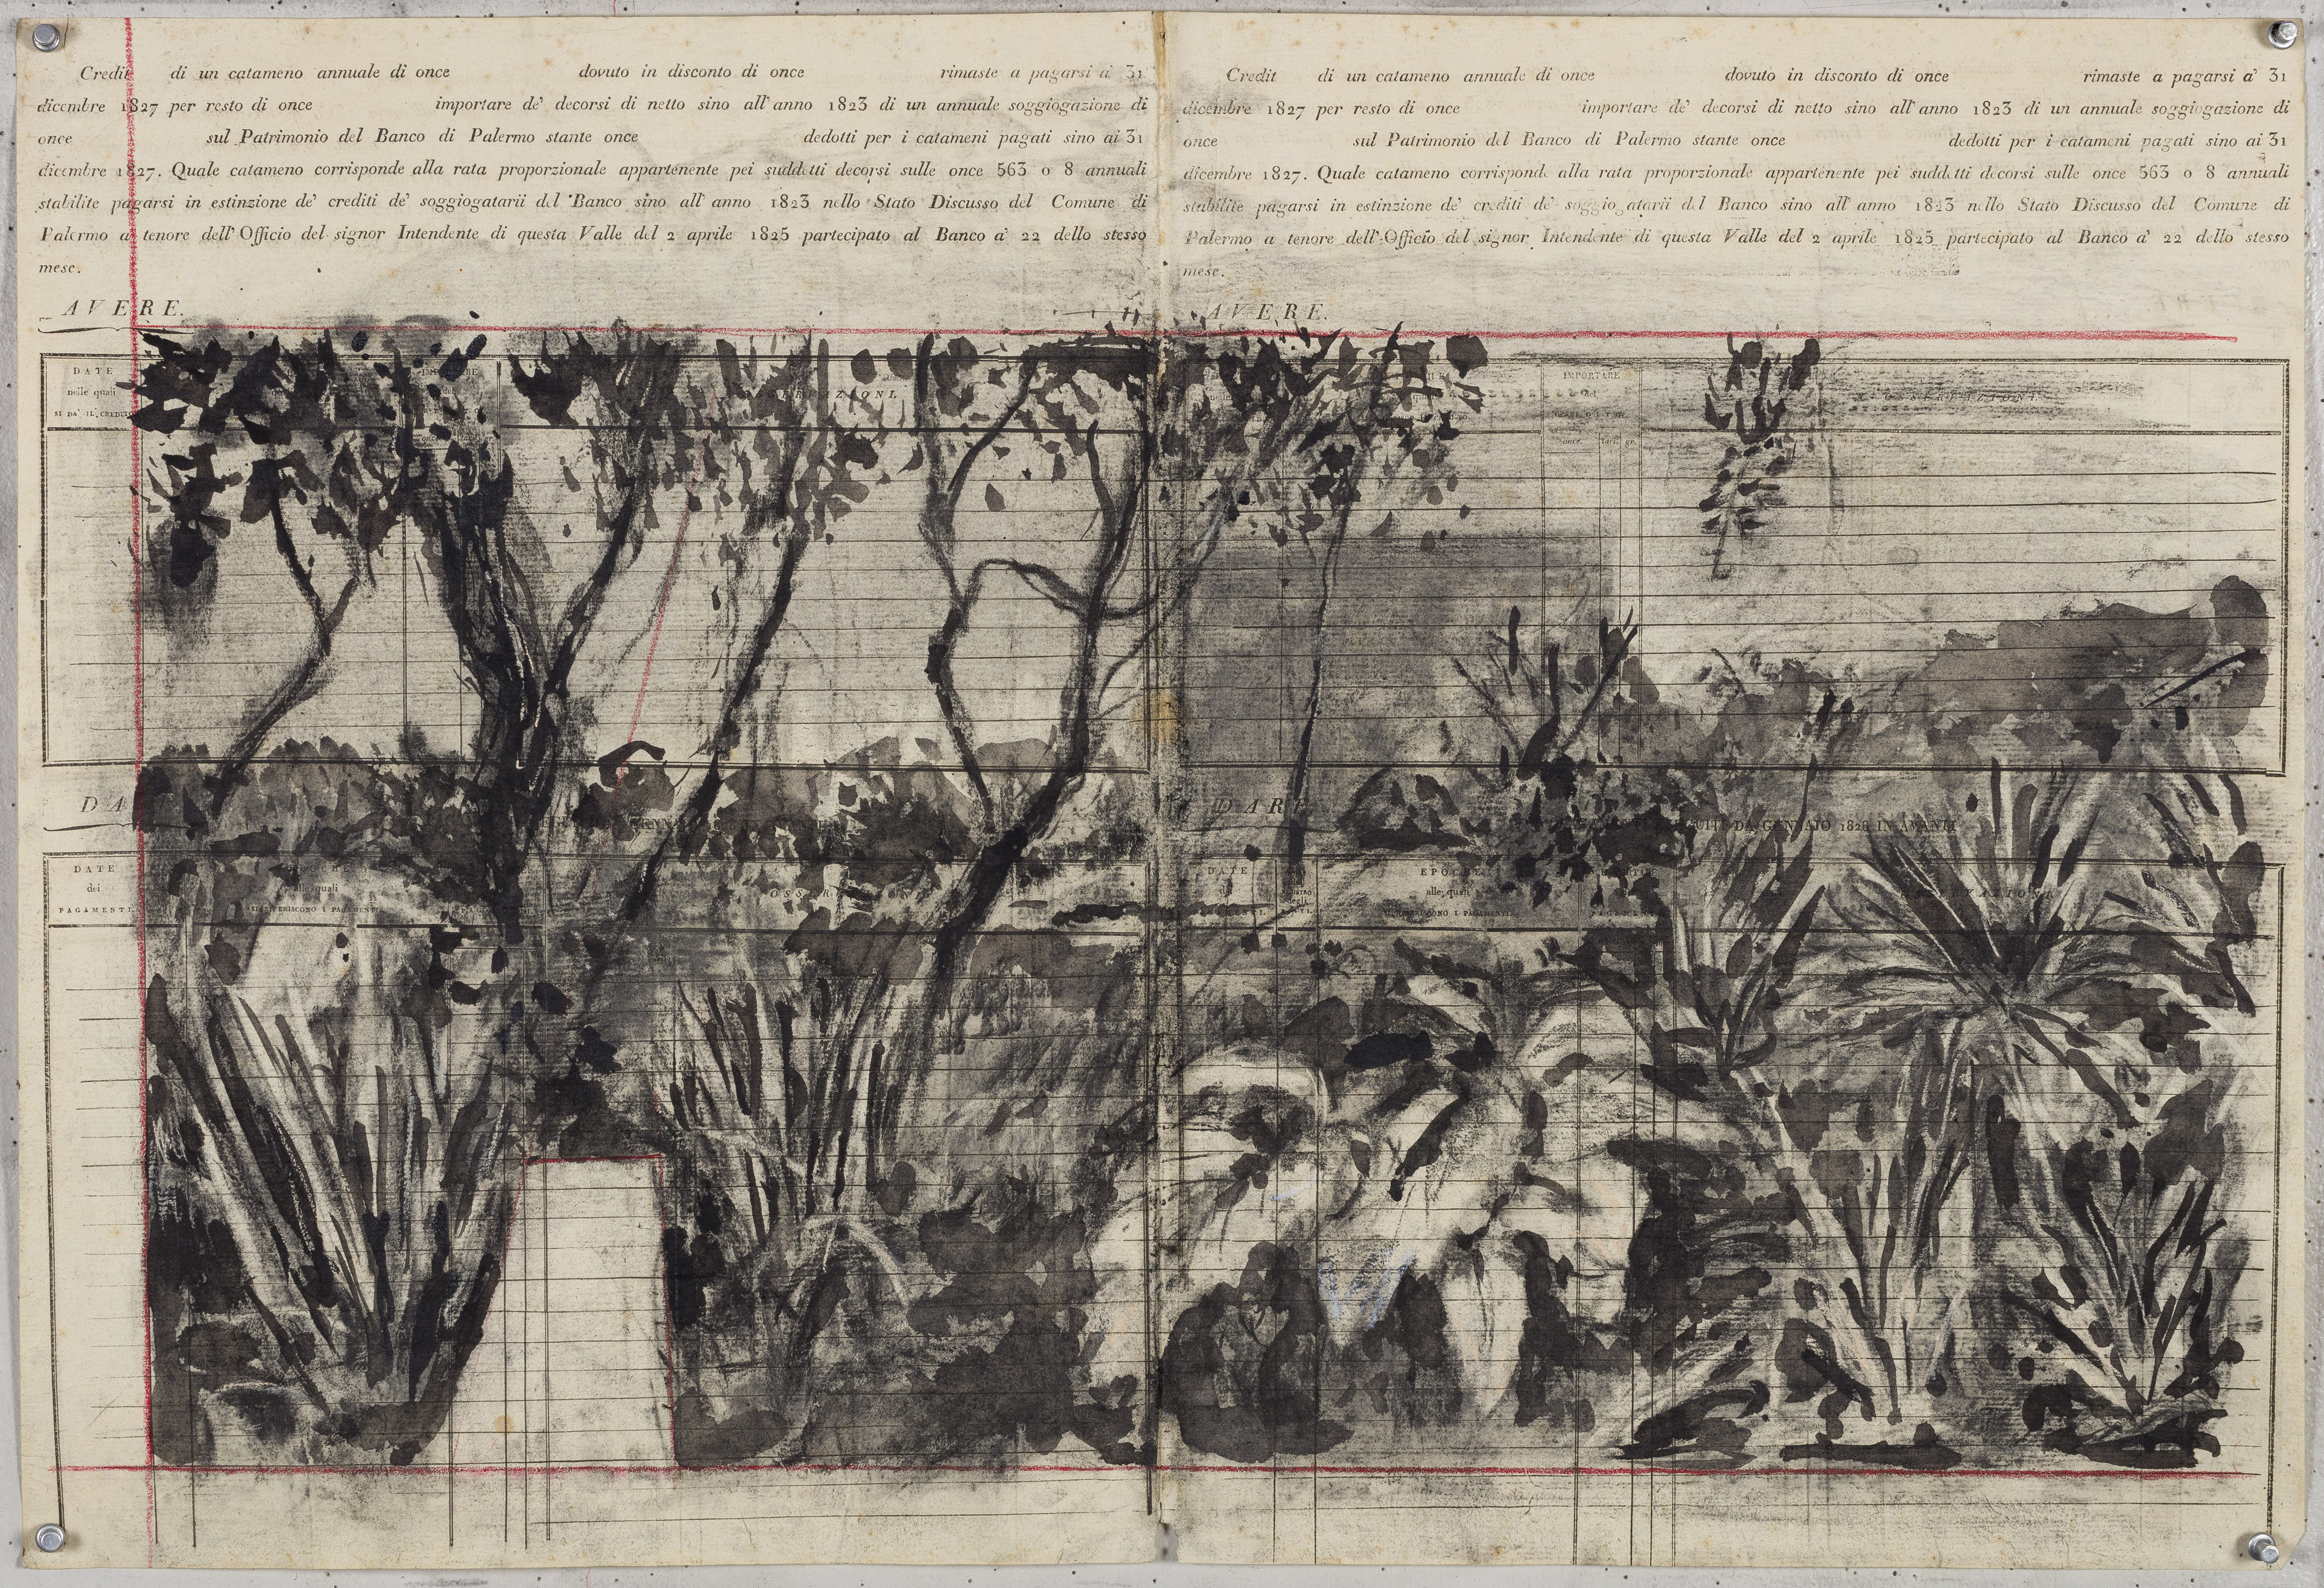 Credit di un catameno annuale di once dovuto in disconto di once rimaste a pagarsi a' 31
dicembre 1827 per resto di once importare de' decorsi di netto sino all'anno 1823 di un annuale soggiogazione di
once sul Patrimonio del Banco di Palermo stante once dedotti per i catameni pagati sino ai 31
dicembre 1827. Quale catameno corrisponde alla rata proporzionale appartenente pei suddetti decorsi sulle once 563 0 8 annuali
stabilite pagarsi in estinzione de' crediti de' soggiogatarii del Banco sino all'anno 1823 nello Stato Discusso del Comune di
Palermo a tenore dell'Officio del signor Intendente di questa Valle del 2 aprile 1825 partecipato al Banco a' 22 dello stesso
mese.
AVERE.
DATE
nelle quali
SI DA' IL CREDITO
DA
DATE
dei
PAGAMENTI.
alle quali
SI RIFERISCONO I PAGAMENTI
Credit di un catameno annuale di once dovuto in disconto di once rimaste a pagarsi a' 31
dicembre 1827 per resto di once importare de' decorsi di netto sino all'anno 1823 di un annuale soggiogazione di
once sul Patrimonio del Banco di Palermo stante once dedotti per i catameni pagati sino ai 31
dicembre 1827. Quale catameno corrisponde alla rata proporzionale appartenente pei suddetti decorsi sulle once 563 0 8 annuali
stabilite pagarsi in estinzione de' crediti de' soggiogatarii del Banco sino all'anno 1823 nello Stato Discusso del Comune di
Palermo a tenore dell'Officio del signor Intendente di questa Valle del 2 aprile 1825 partecipato al Banco a' 22 dello stesso
mese.
AVERE.
IMPORTARE
OSSERVAZIONI.
once. tarì. gr.
DARE
DA GENNAIO 1828 IN AVANTI
DATE
EPOCHE
alle quali